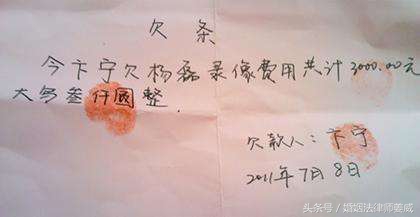 欠条
今卞宁欠杨磊录像费用共计3000.00元
大写叁仟圆整.
欠款人：卞宁
2011年7月8日
头条号／婚姻法律师娄威